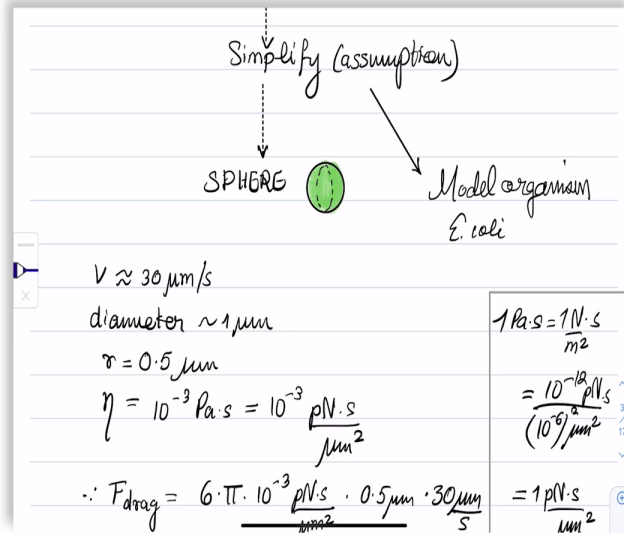 Simplify (assumption)
SPHERE
Model organism
E. coli
V ≈ 30 μm/s
diameter ~ 1 μm
r = 0.5 μm
η = 10⁻³ Pa·s = 10⁻³ pN·s / μm²
∴ F_drag = 6·π·10⁻³ pN·s / μm² · 0.5 μm · 30 μm / s
1 Pa·s = 1 N·s / m²
= 10⁻¹² pN·s / (10⁻⁶)² μm²
= 1 pN·s / μm²